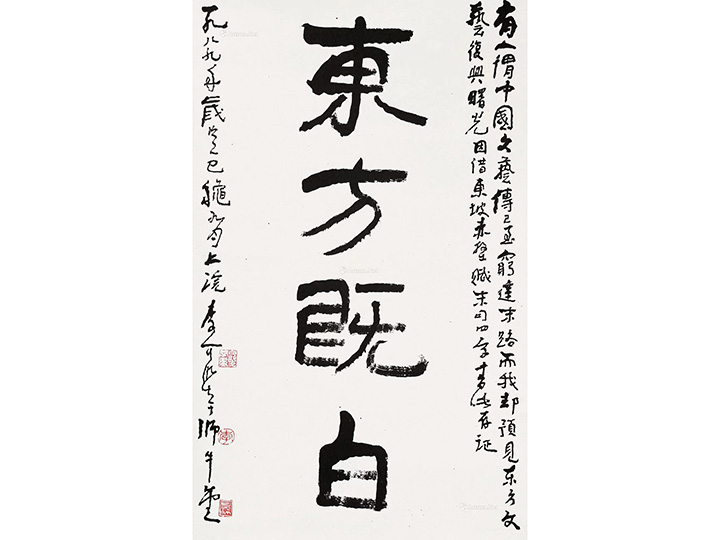 有人謂中國文藝傳已至窮途末路而我却預見東方文
藝復興曙光因借東坡赤壁賦末句四字書此存証
東方既白
一九八九年歲次己巳九月上浣李可染於師牛堂